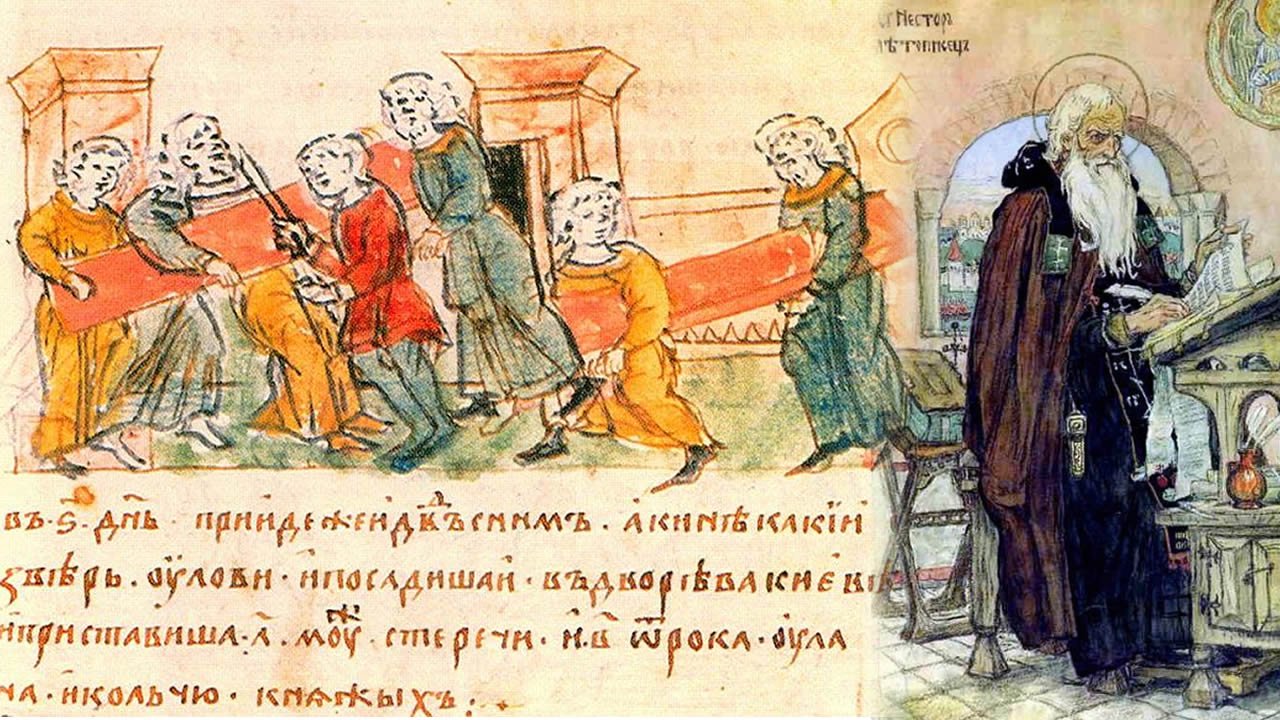 въ·ѕ҃·дн҃ь· прииде же и дв҃дъ с нимъ· аки нѣкакїи
звѣрь· оулови· и посадиша и· въ дворѣ вакиєвѣ
и приставиша·л҃·моуⷤ· стеречи· и·в҃·ѿрока· оула
на· и кольчю· княжыхъ:·
Несторъ
лѣтописецъ